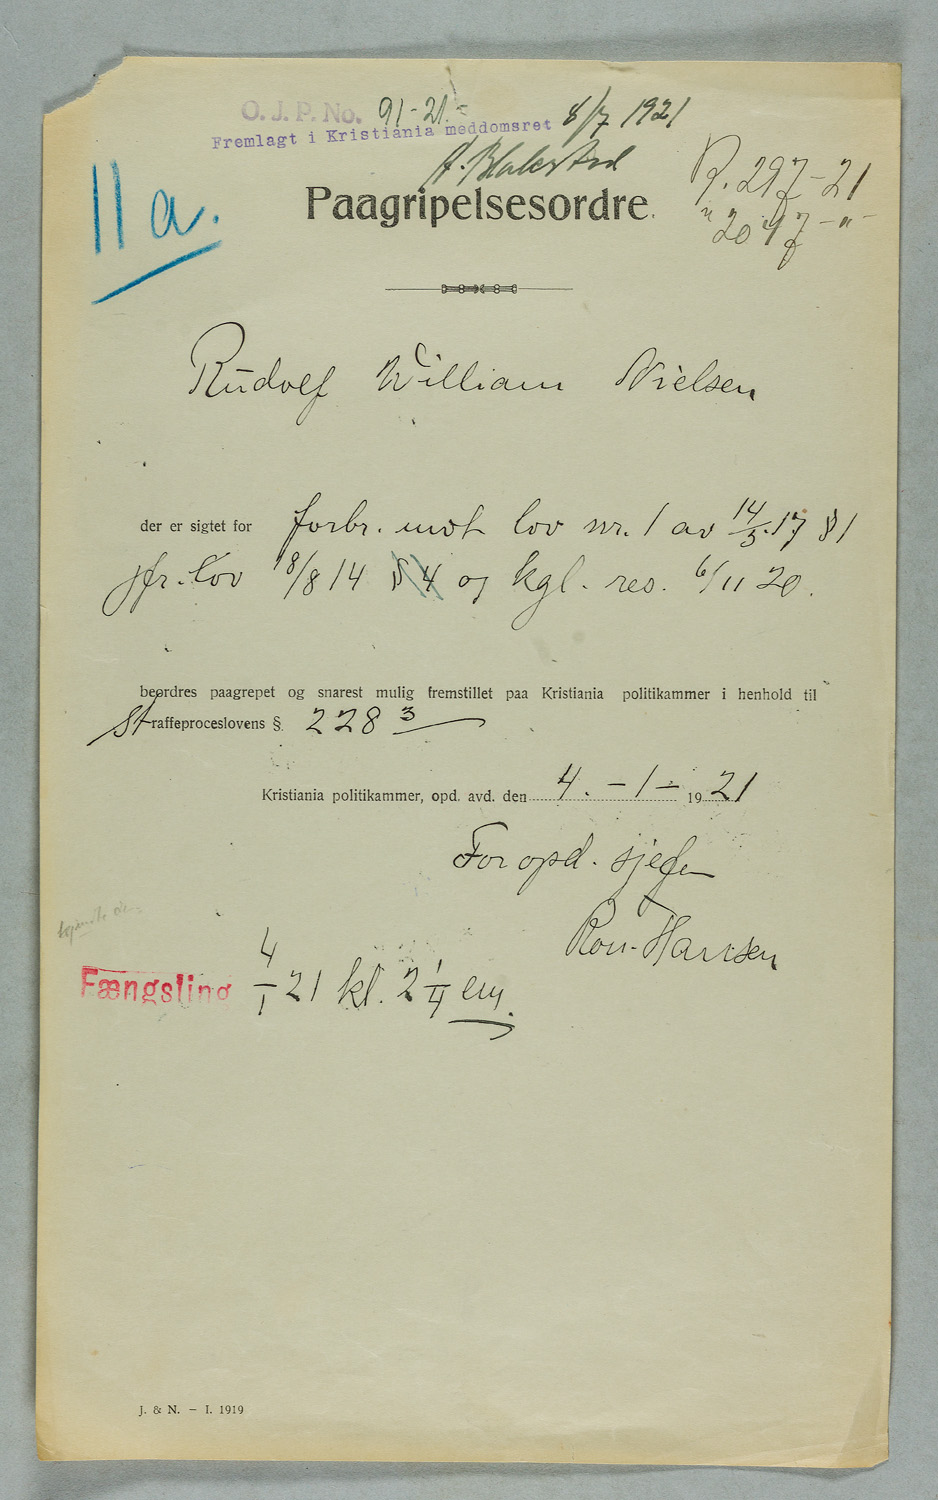 O. J. P. No. 91-21.-
Fremlagt i Kristiania meddomsret 8/7 1921
R. 297-21
" 2047 - " -
11 a.
Paagripelsesordre.
Rudolf William Nielsen
der er sigtet for forbr. mot lov nr. 1 av 14/5.17 § 1
jfr. lov 18/8 14 § 4 og kgl. res. 6/11 20.
beordres paagrepet og snarest mulig fremstillet paa Kristiania politikammer i henhold til
straffeproceslovens §. 228 3
Kristiania politikammer, opd. avd. den 4. - 1 - 1921
For opd. sjefen
Hansen
Fængsling 4/1 21 kl. 2 1/4 em.
J. & N. — I. 1919